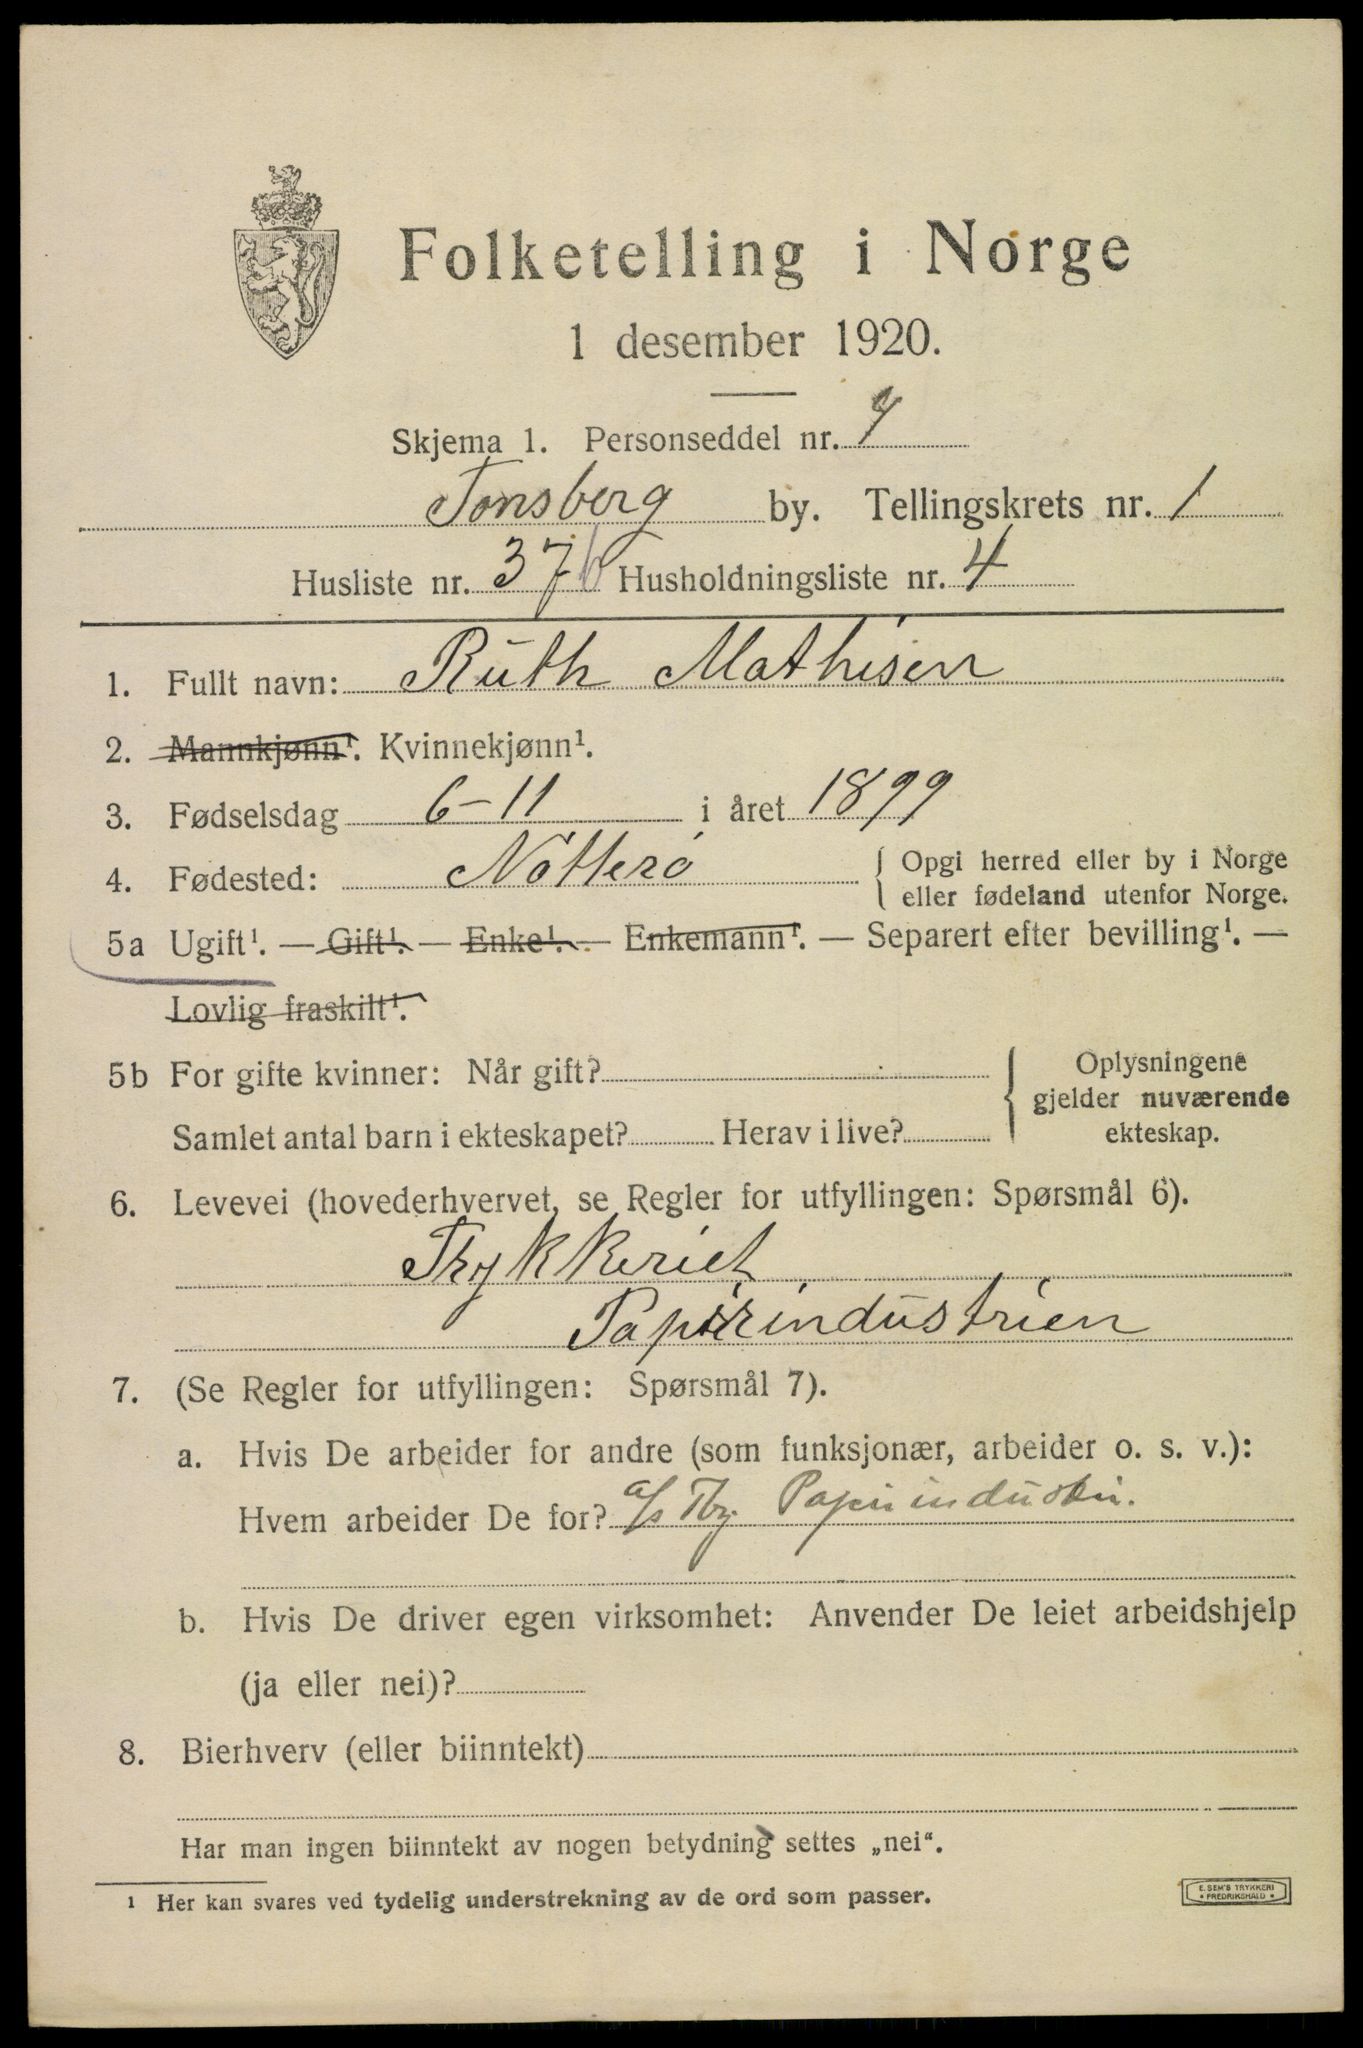 Folketelling i Norge
1 desember 1920.
Skjema 1. Personseddel nr. 9
Tonsberg by. Tellingskrets nr. 1
Husliste nr. 37b Husholdningsliste nr. 4
1. Fullt navn: Ruth Mathisen
2. Mannkjønn¹. Kvinnekjønn¹.
3. Fødselsdag 6-11 i året 1899
4. Fødested: Nötterö { Opgi herred eller by i Norge
eller fødeland utenfor Norge.
5a Ugift¹. — Gift¹. — Enke¹. — Enkemann¹. — Separert efter bevilling¹. —
Lovlig fraskilt¹.
5b For gifte kvinner: Når gift?
Samlet antal barn i ekteskapet? Herav i live?
{ Oplysningene
gjelder nuværende
ekteskap.
6. Levevei (hovederhvervet, se Regler for utfyllingen: Spørsmål 6).
Trykkeriet
Papirindustrien
7. (Se Regler for utfyllingen: Spørsmål 7).
a. Hvis De arbeider for andre (som funksjonær, arbeider o. s. v.):
Hvem arbeider De for? a/s Tbg. Papirindustri.
b. Hvis De driver egen virksomhet: Anvender De leiet arbeidshjelp
(ja eller nei)?
8. Bierhverv (eller biinntekt)
Har man ingen biinntekt av nogen betydning settes „nei“.
¹ Her kan svares ved tydelig understrekning av de ord som passer.
E. SEM'S TRYKKERI
• FREDRIKSHALD •